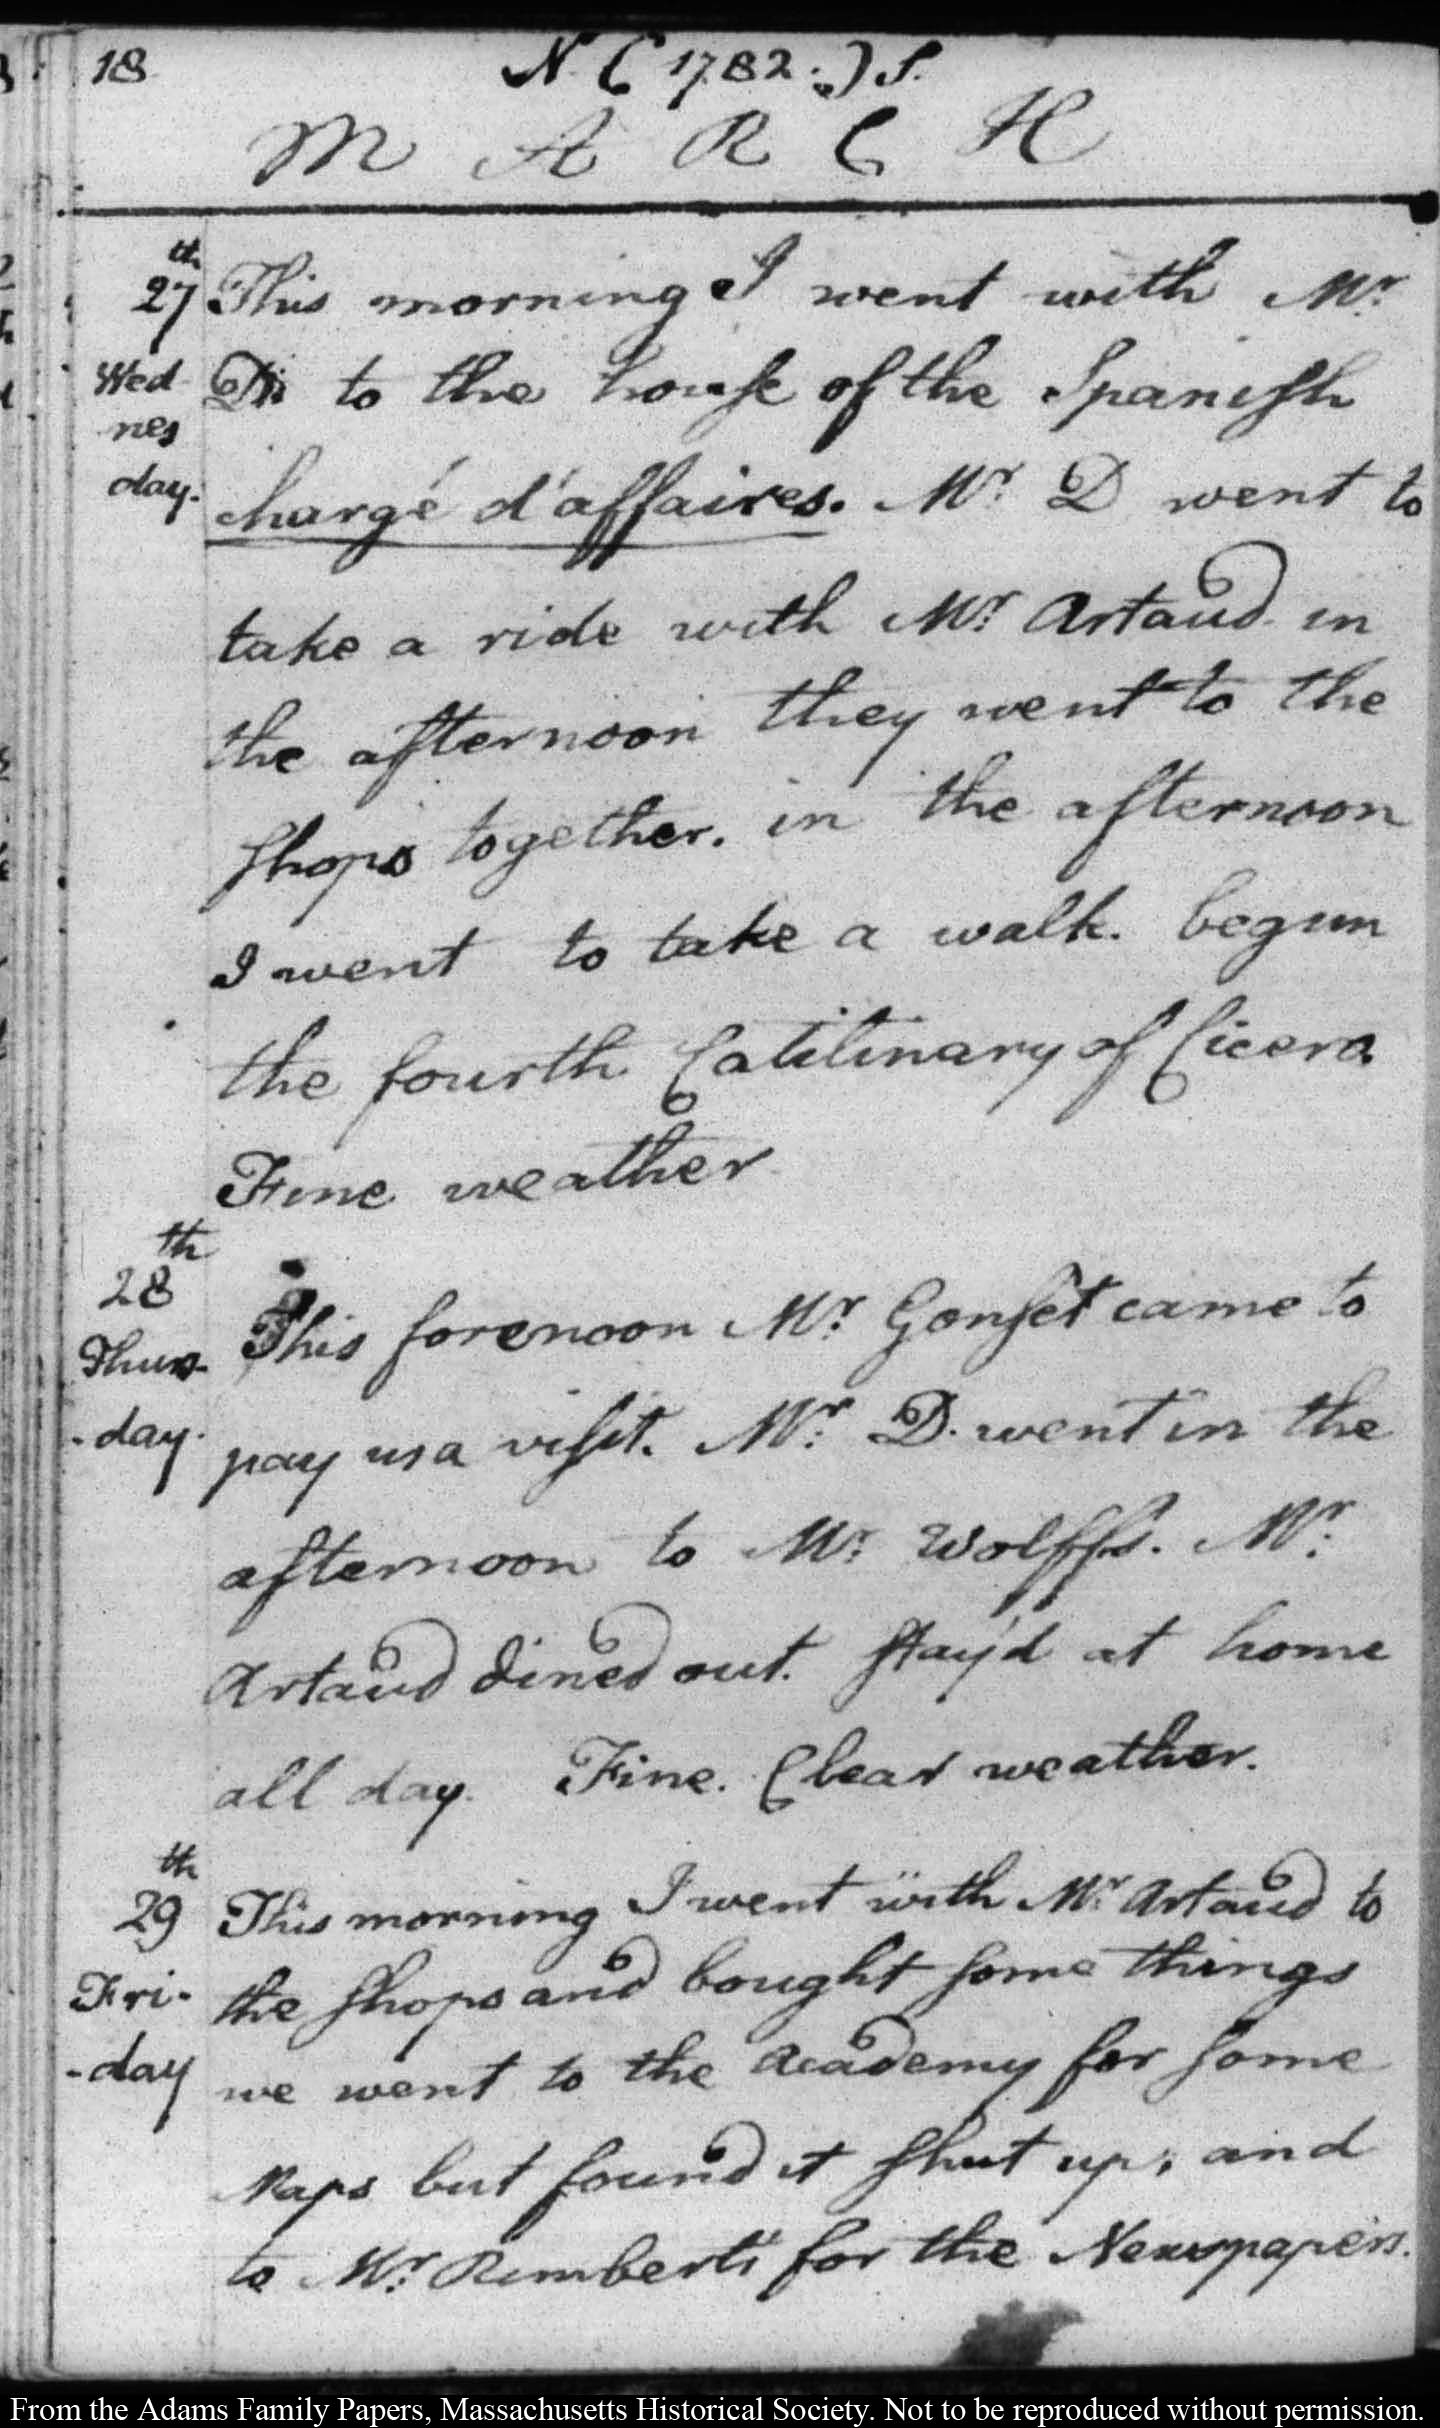 18 N. (1782.) S.
M A R C H
27th Wednesday. This morning I went with Mr.
D. to the house of the Spanish
chargé d'affaires. Mr. D went to
take a ride with Mr. Artaud in
the afternoon they went to the
shops together. in the afternoon
I went to take a walk. begun
the fourth Catilinary of Cicero.
Fine weather
28th Thursday. This forenoon Mr. Gonset came to
pay us a visit. Mr. D. went in the
afternoon to Mr. Wolffs. Mr.
Artaud dined out. stay'd at home
all day. Fine. Clear weather.
29th Fri-day This morning I went with Mr. Artaud to
the shops and bought some things
we went to the Academy for some
Maps but found it shut up; and
to Mr. Rimberti for the Newspapers.
From the Adams Family Papers, Massachusetts Historical Society. Not to be reproduced without permission.